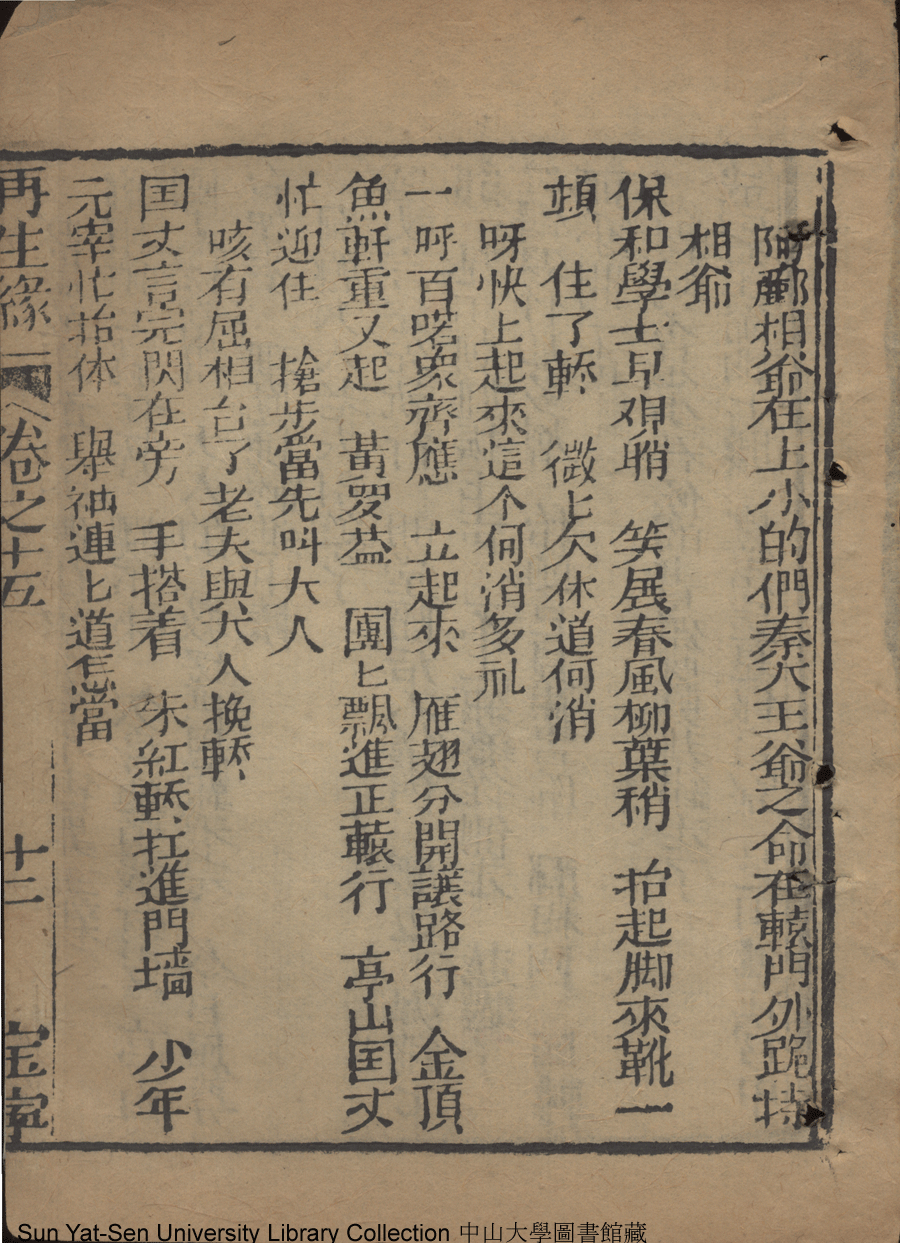 阿酈相爺在上小的們奉大王爺之命在轅門外跪接
相爺
保和學士早艰哨　笑展春風柳葉稍　抬起脚來靴一
頓　住了轎　微匕欠休道何消
呀快上起來這个何消多礼
一呼百喏衆齊應　立起來　雁翅分開讓路行　金頂
魚軒重又起　黃罗盖　團匕飄進正轅行　亭山囯丈
忙迎住　搶步當先叫大人
咳有屈相台了老夫與大人挽轎
囯丈言完閃在旁　手搭着　朱紅轎扛進門墙　少年
元宰忙抬体　舉袖連匕道怎當
再生緣一　卷之十五　十二　宝寧
Sun Yat-Sen University Library Collection 中山大學圖書館藏